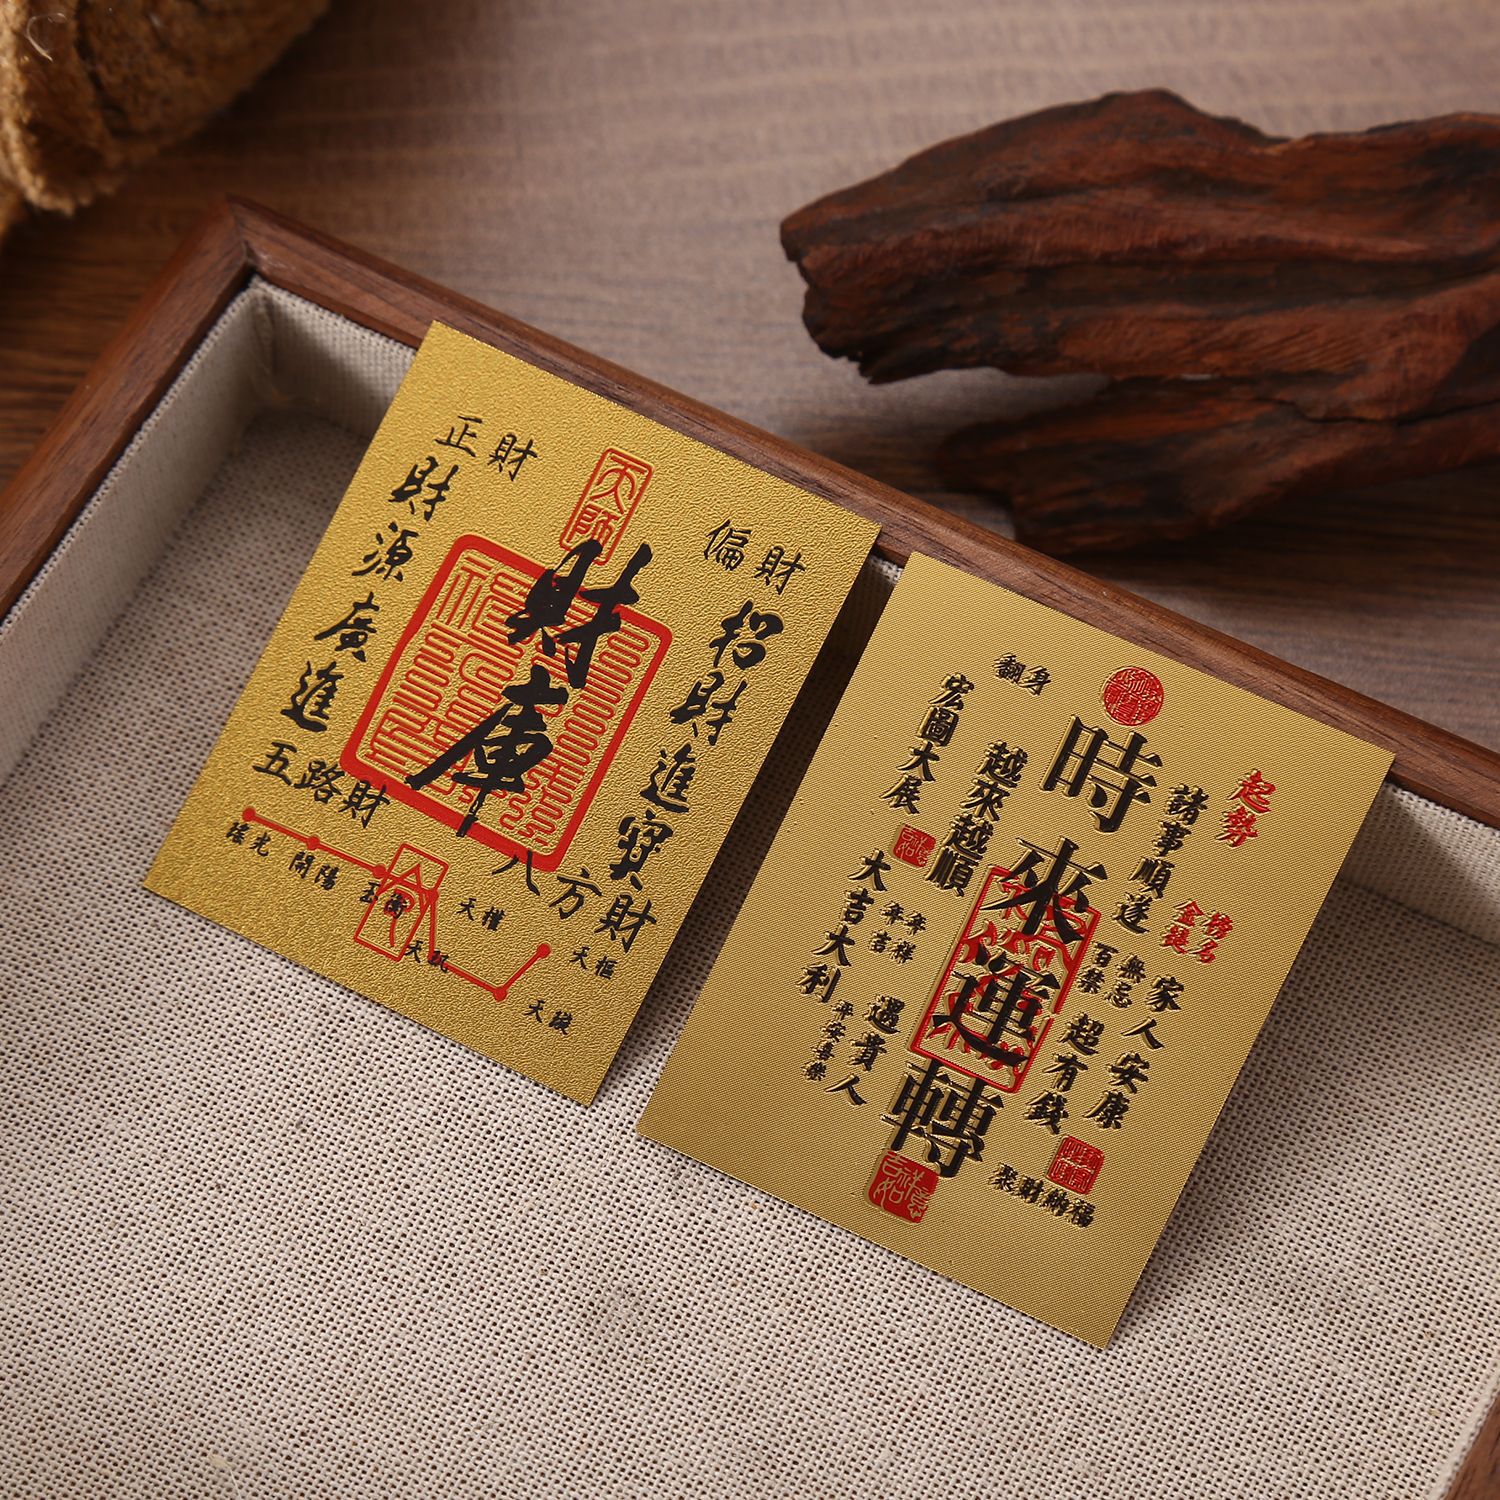 正財
財源廣進
五路財
天師
財庫
偏財
招財進寶
八方財
瑤光
開陽
玉衡
天權
天璣
天樞
天璇
翻身
宏圖大展
越來越順
時來運轉
起勢
諸事順遂
金榜
題名
百無
禁忌
家人安康
超有錢
大吉大利
年年
吉祥
平安喜樂
遇貴人
聚財納福
吉祥
如意